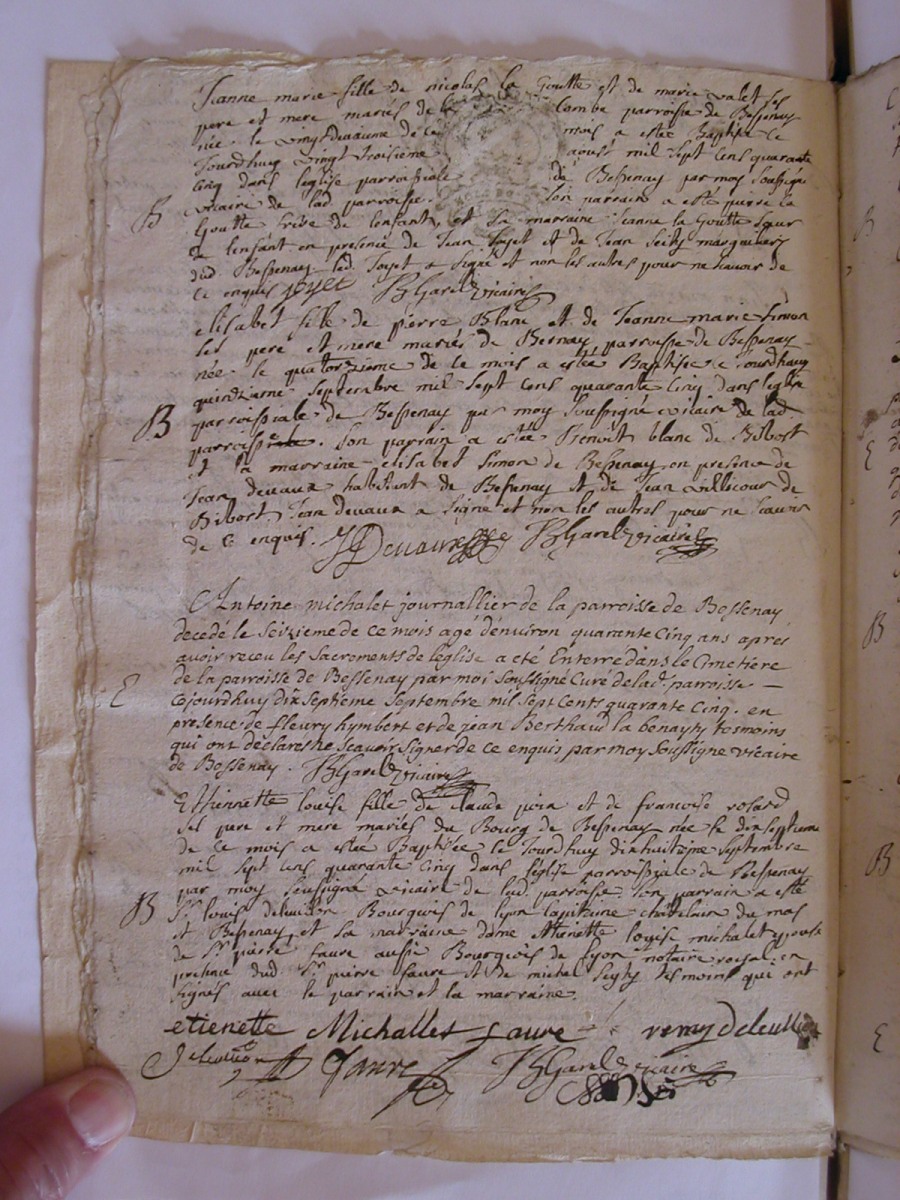 Jeanne marie fille de nicolas la Goutte et de marie valet ses
pere et mere mariés de la combe parroisse de Bessenay
née le vingtdeuxieme de ce mois a estée Baptisée ce
Jourdhuy vingt troisieme aoust mil sept cens quarante
cinq dans leglise parroissiale de Bessenay par moy soussigné
B vicaire de lad. parroisse. son parrain a esté pierre la
Goutte frere de lenfant, et sa marraine Jeanne la Goutte sœur
de lenfant en presence de Jean Joyet et de Jean Seity marguillers
dud. Bessenay led. Joyet a signé et non les autres pour ne scavoir de
ce enquis joyet Garel vicaire
elisabet fille de pierre Blanc et de Jeanne marie Simon
ses pere et mere mariés de Bernay parroisse de Bessenay
née le quatorzieme de ce mois a estée Baptisée ce jourdhuy
quinzieme septembre mil sept cens quarante cinq dans leglise
B parroissiale de Bessenay par moy soussigné vicaire de lad.
parroisse. son parrain a estée Benoit blanc de Bibost
et la marraine elisabet Simon de Bessenay en presence de
Jean devaux habitant de Bessenay et de Jean villicour de
Bibost Jean devaux a signé et non les autres pour ne scavoir
de ce enquis. J Devaux Garel vicaire
Antoine michalet journallier de la parroisse de Bessenay
decedé le seizieme de ce mois agé d'environ quarante cinq ans apres
avoir receu les sacrements de leglise a eté Enterré dans le Cimetiere
de la parroisse de Bessenay par moi soussigné Curé de lad. parroisse
E cejourdhuy dix septieme septembre mil sept cents quarante cinq. en
presence de fleury hymbert et de jean Berthaud la benayty tesmoins
qui ont déclarés ne scavoir signer de ce enquis, par moy soussigné vicaire
de Bessenay. Garel vicaire
Ethiennette louise fille de claude et de francoise
ses pere et mere mariés du Bourg de Bessenay née le dix septieme
de ce mois a estée Baptisée le Jourdhuy dixhuitaine septembre
mil sept cens quarante cinq dans léglise parroissiale de Bessenay
par moy soussigné vicaire de lad. parroisse son parrain a esté
B Sr. louis Bourgeois de lyon capitaine chatelain du mas
et Bessenay, et sa marraine dame Etienette louise michalet epouse
de Sr. pierre faure aussi Bourgeois de lyon, notaire roial. en
presence dud. Sr. pierre faure et de michel Seyty tesmoins qui ont
signés avec le parrain et la marraine.
etienette Michallet faure remy
faure Garel vicaire